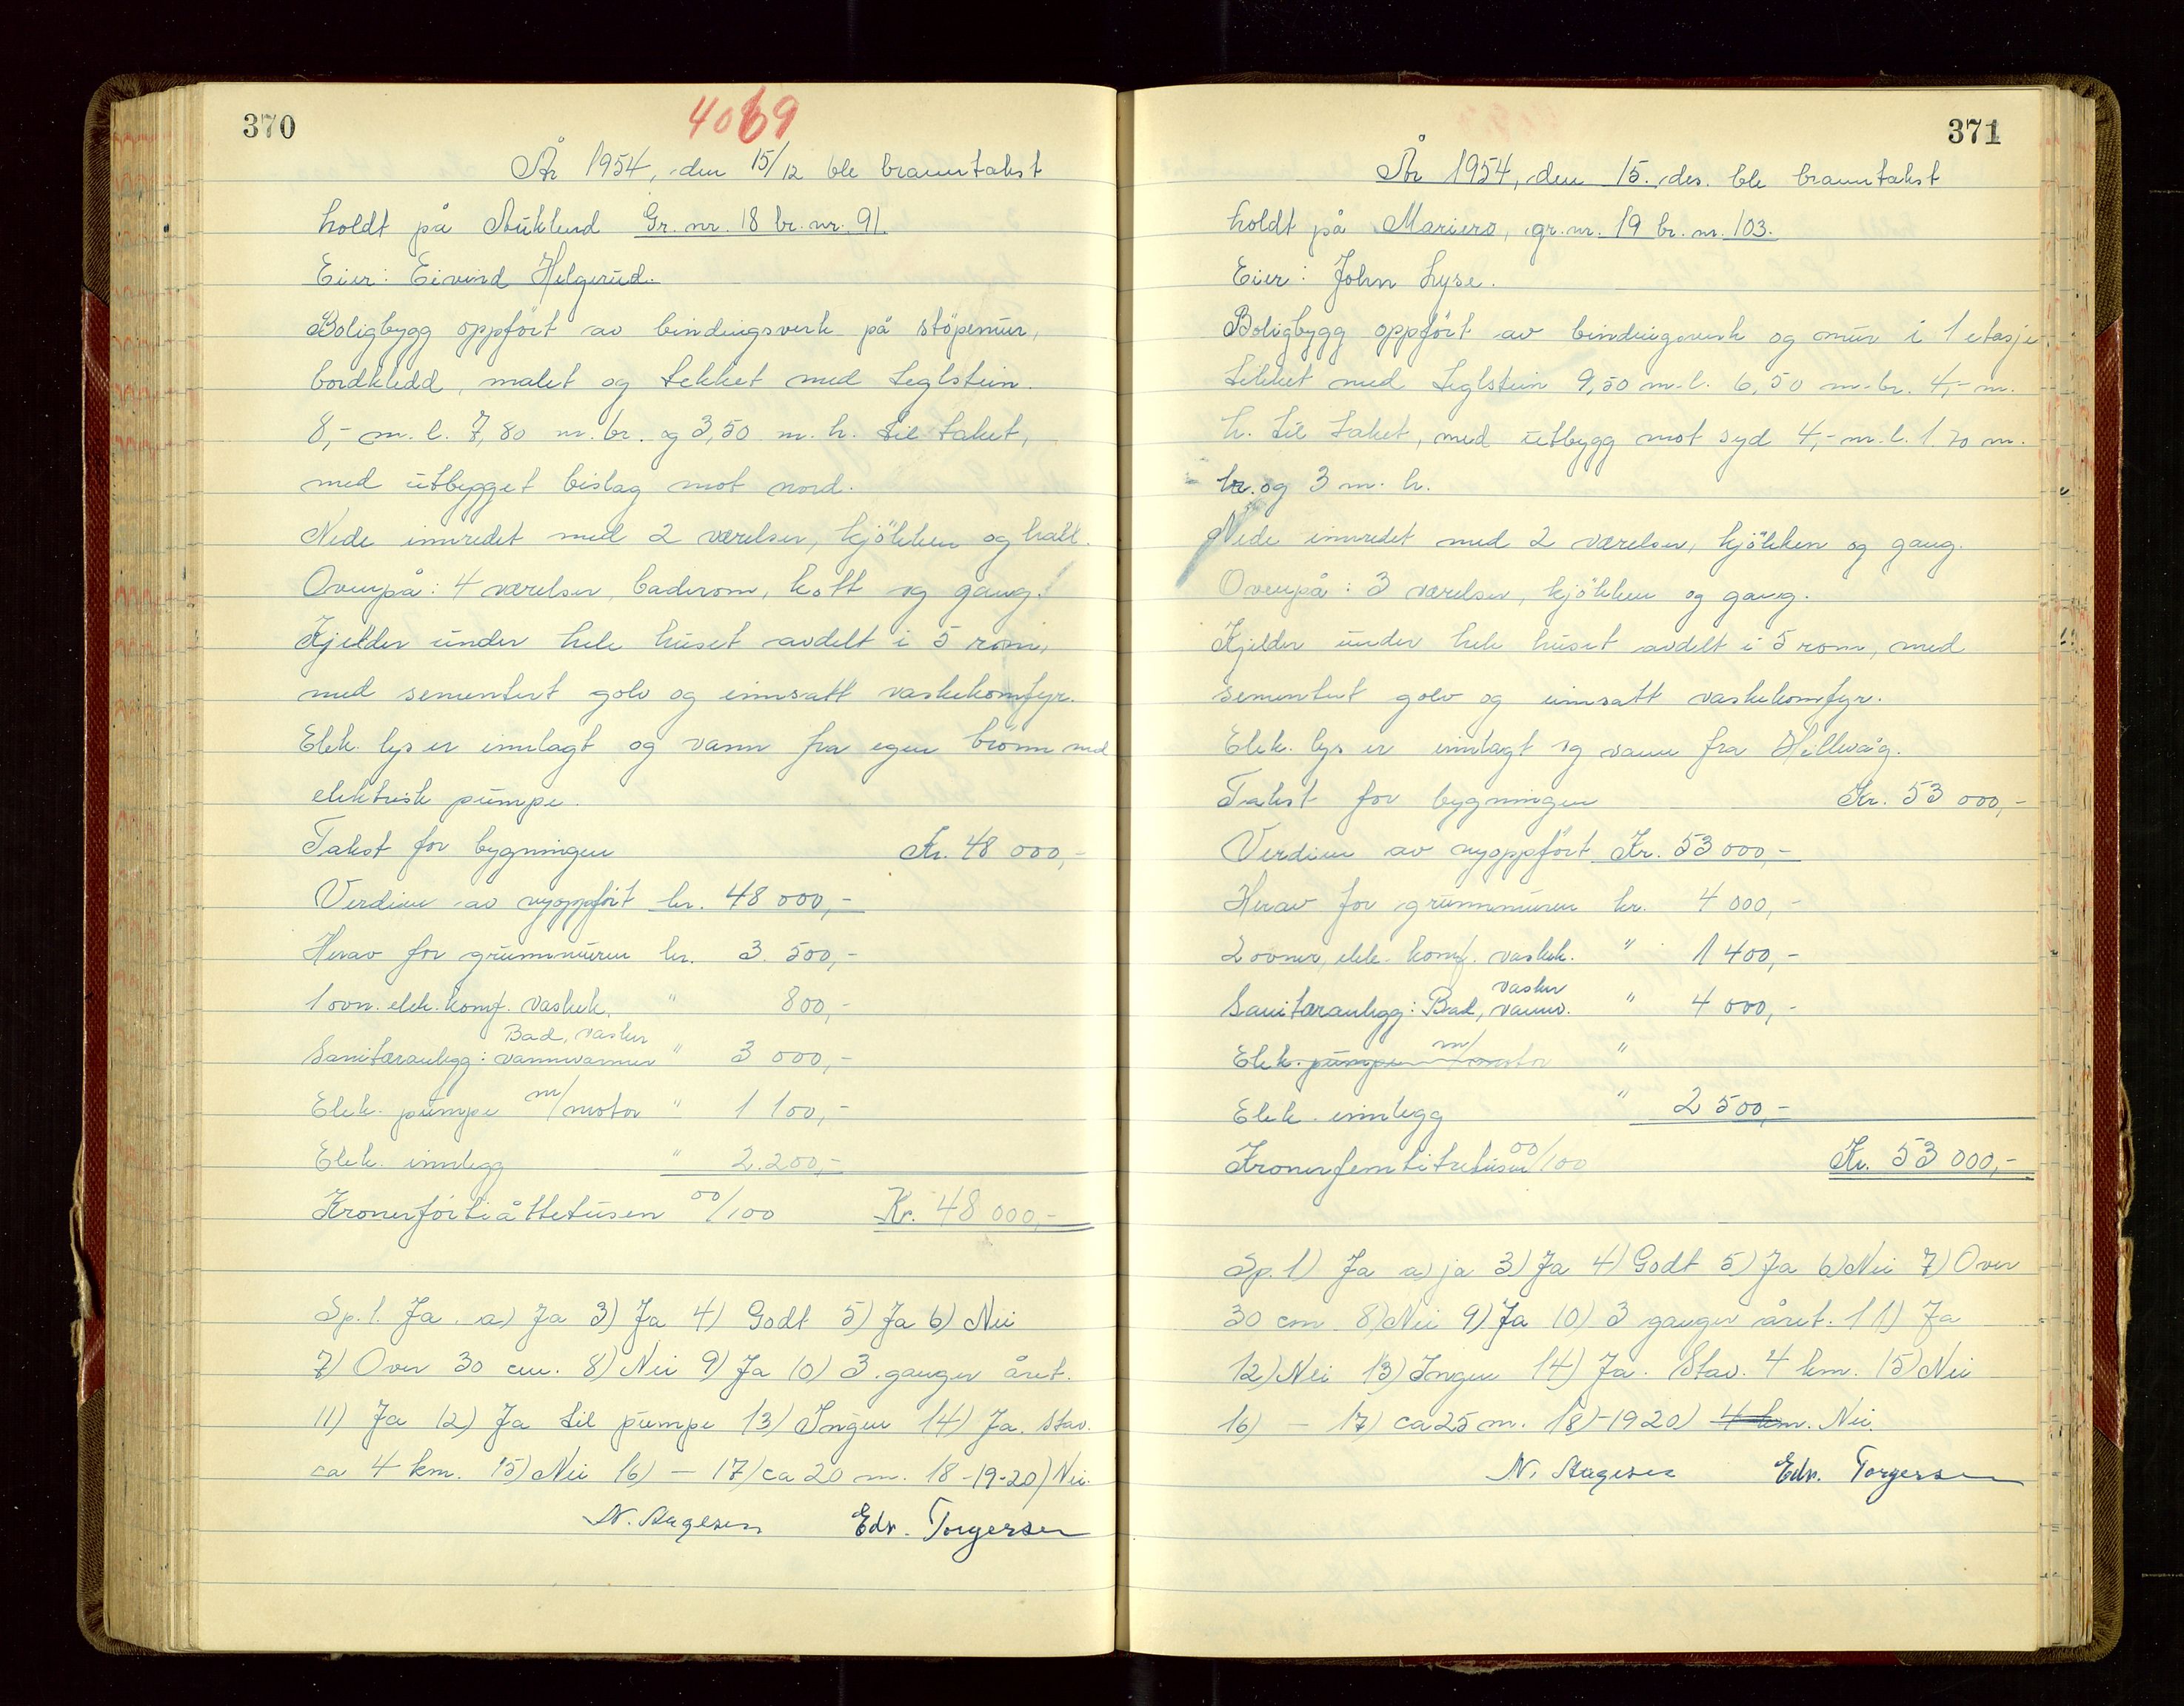 370
4069
År 1954, den 15/12 ble branntakst
holdt på Auklend Gr. nr. 18 br. nr. 91.
Eier: Eivind Helgerud.
Boligbygg oppfört av bindingsverk på stöpemur,
bordkledd, malet og tekket med teglstein.
8,- m. l. 7,80 m. br. og 3,50 m. h. til taket,
med utbygget bislag mot nord.
Nede innredet med 2 værelser, kjökken og hall.
Ovenpå: 4 værelser, baderom, kott og gang.
Kjelder under hele huset avdelt i 5 rom,
med sementert golv og innsatt vaskekomfyr.
Elek. lys er innlagt og vann fra egen brönn med
elektrisk pumpe.
Takst for bygningen Kr. 48 000,-
Verdien av nyoppfört kr. 48 000,-
Herav for grunnmuren kr. 3. 500,-
1 ovn. elek. komf. vaskek. " 800,-
Bad, vasker
Sanitæranlegg: vannvarmer " 3 000,-
Elek. pumpe m/motor " 1 100,-
Elek. innlegg " 2.200,-
Kronerförtiåttetusen 00/100 Kr. 48 000,-
Sp. 1. Ja. a) Ja 3) Ja 4) Godt 5) Ja 6) Nei
7) Over 30 cm. 8) Nei 9) Ja 10) 3 ganger året.
11) Ja 12) Ja til pumpe 13) Ingen 14) Ja. Stav.
ca 4 km. 15) Nei 16) — 17) ca 20 m. 18-19-20) Nei.
N. Aagesen Edv. Torgersen
371
År 1954, den 15. des. ble branntakst
holdt på Mariero, gr. nr. 19 br. nr. 103.
Eier: John Lyse.
Boligbygg oppfört av bindingsverk og mur i 1 etasje
tekket med teglstein 9,50 m. l. 6,50 m. br. 4,- m.
h. til taket, med utbygg mot syd 4,- m. l. 1.70 m.
br. og 3 m. h.
Nede innredet med 2 værelser, kjökken og gang.
Ovenpå: 3 værelser, kjökken og gang.
Kjelder under hele huset avdelt i 5 rom, med
sementert golv og innsatt vaskekomfyr.
Elek. lys er innlagt og vann fra Hillevåg.
Takst for bygningen Kr. 53 000,-
Verdien av nyoppfört Kr. 53 000,-
Herav for grunnmuren kr. 4 000,-
2 ovner, elek. komf. vaskek. " 1 400,-
vasker
Sanitæranlegg: Bad, vannv. " 4 000,-
Elek. pumpe m/motor "
Elek. innlegg " 2 500,-
Kronerfemtitretusen 00/100 Kr. 53 000,-
Sp. 1) Ja a) ja 3) Ja 4) Godt 5) Ja 6) Nei 7) Over
30 cm 8) Nei 9) Ja 10) 3 ganger året. 11) Ja
12) Nei 13) Ingen 14) Ja. Stav. 4 km. 15) Nei
16) — 17) ca 25 m. 18)-19 20) 4 km. Nei.
N. Aagesen Edv. Torgersen